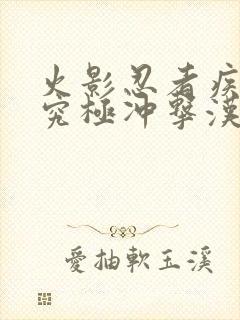 火影忍者疾
究極冲擊漢
愛抽軟玉溪